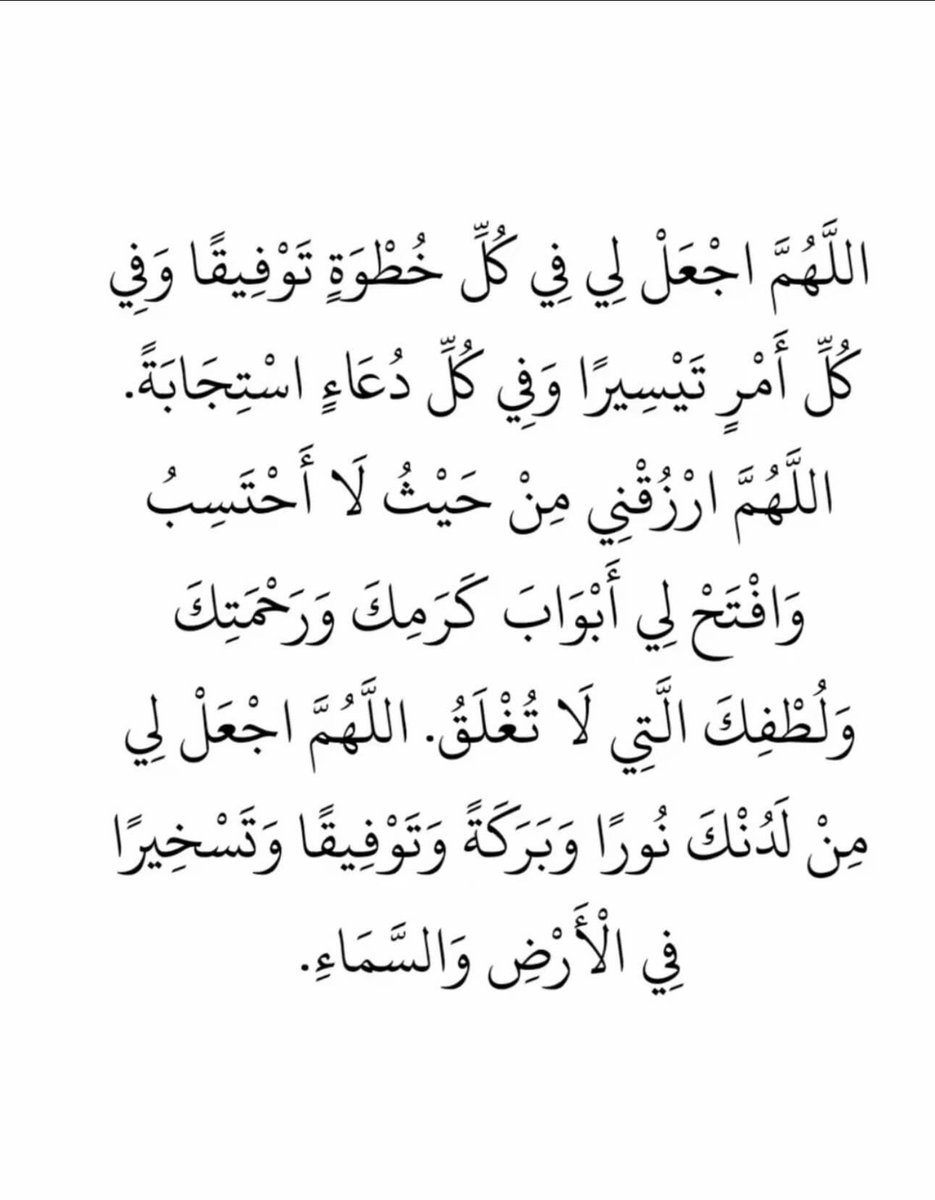 اللَّهُمَّ اجْعَلْ لِي فِي كُلِّ خُطْوَةٍ تَوْفِيقًا وَفِي
كُلِّ أَمْرٍ تَيْسِيرًا وَفِي كُلِّ دُعَاءٍ اسْتِجَابَةً.
اللَّهُمَّ ارْزُقْنِي مِنْ حَيْثُ لَا أَحْتَسِبُ
وَافْتَحْ لِي أَبْوَابَ كَرَمِكَ وَرَحْمَتِكَ
وَلُطْفِكَ الَّتِي لَا تُغْلَقُ. اللَّهُمَّ اجْعَلْ لِي
مِنْ لَدُنْكَ نُورًا وَبَرَكَةً وَتَوْفِيقًا وَتَسْخِيرًا
فِي الْأَرْضِ وَالسَّمَاءِ.